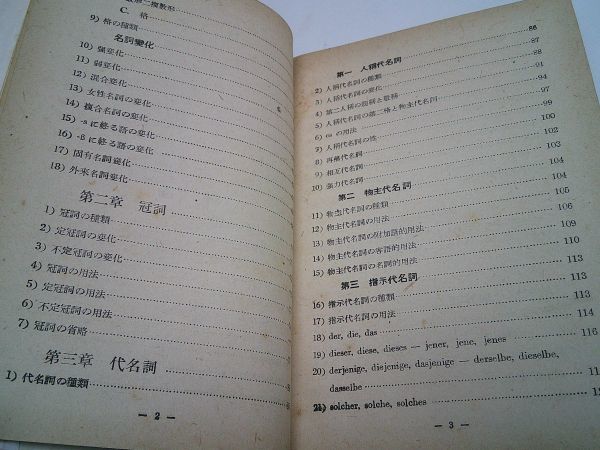 C. 格
9) 格の種類
名詞變化
10) 強變化
11) 弱變化
12) 混合變化
13) 女性名詞の變化
14) 複合名詞の變化
15) -s に終る語の變化
16) -ß に終る語の變化
17) 固有名詞變化
18) 外來名詞變化
第二章 冠詞
1) 冠詞の種類
2) 定冠詞の變化
3) 不定冠詞の變化
4) 冠詞の用法
5) 定冠詞の用法
6) 不定冠詞の用法
7) 冠詞の省略
第三章 代名詞
1) 代名詞の種類
— 2 —
86
第一 人稱代名詞 87
2) 人稱代名詞の種類 88
3) 人稱代名詞の變化 91
4) 第二人稱の親稱と敬稱 94
5) 人稱代名詞の第二格と物主代名詞 97
6) es の用法 99
7) 人稱代名詞の性 100
8) 再歸代名詞 102
9) 相互代名詞 103
10) 強力代名詞 104
第二 物主代名詞 104
11) 物主代名詞の種類 105
12) 物主代名詞の用法 106
13) 物主代名詞の附加語的用法 109
14) 物主代名詞の客語的用法 110
15) 物主代名詞の名詞的用法 110
第三 指示代名詞 113
16) 指示代名詞の種類 113
17) 指示代名詞の用法 113
18) der, die, das 114
19) dieser, diese, dieses — jener, jene, jenes 116
20) derjenige, diejenige, dasjenige — derselbe, dieselbe,
dasselbe
21) solcher, solche, solches
— 3 —